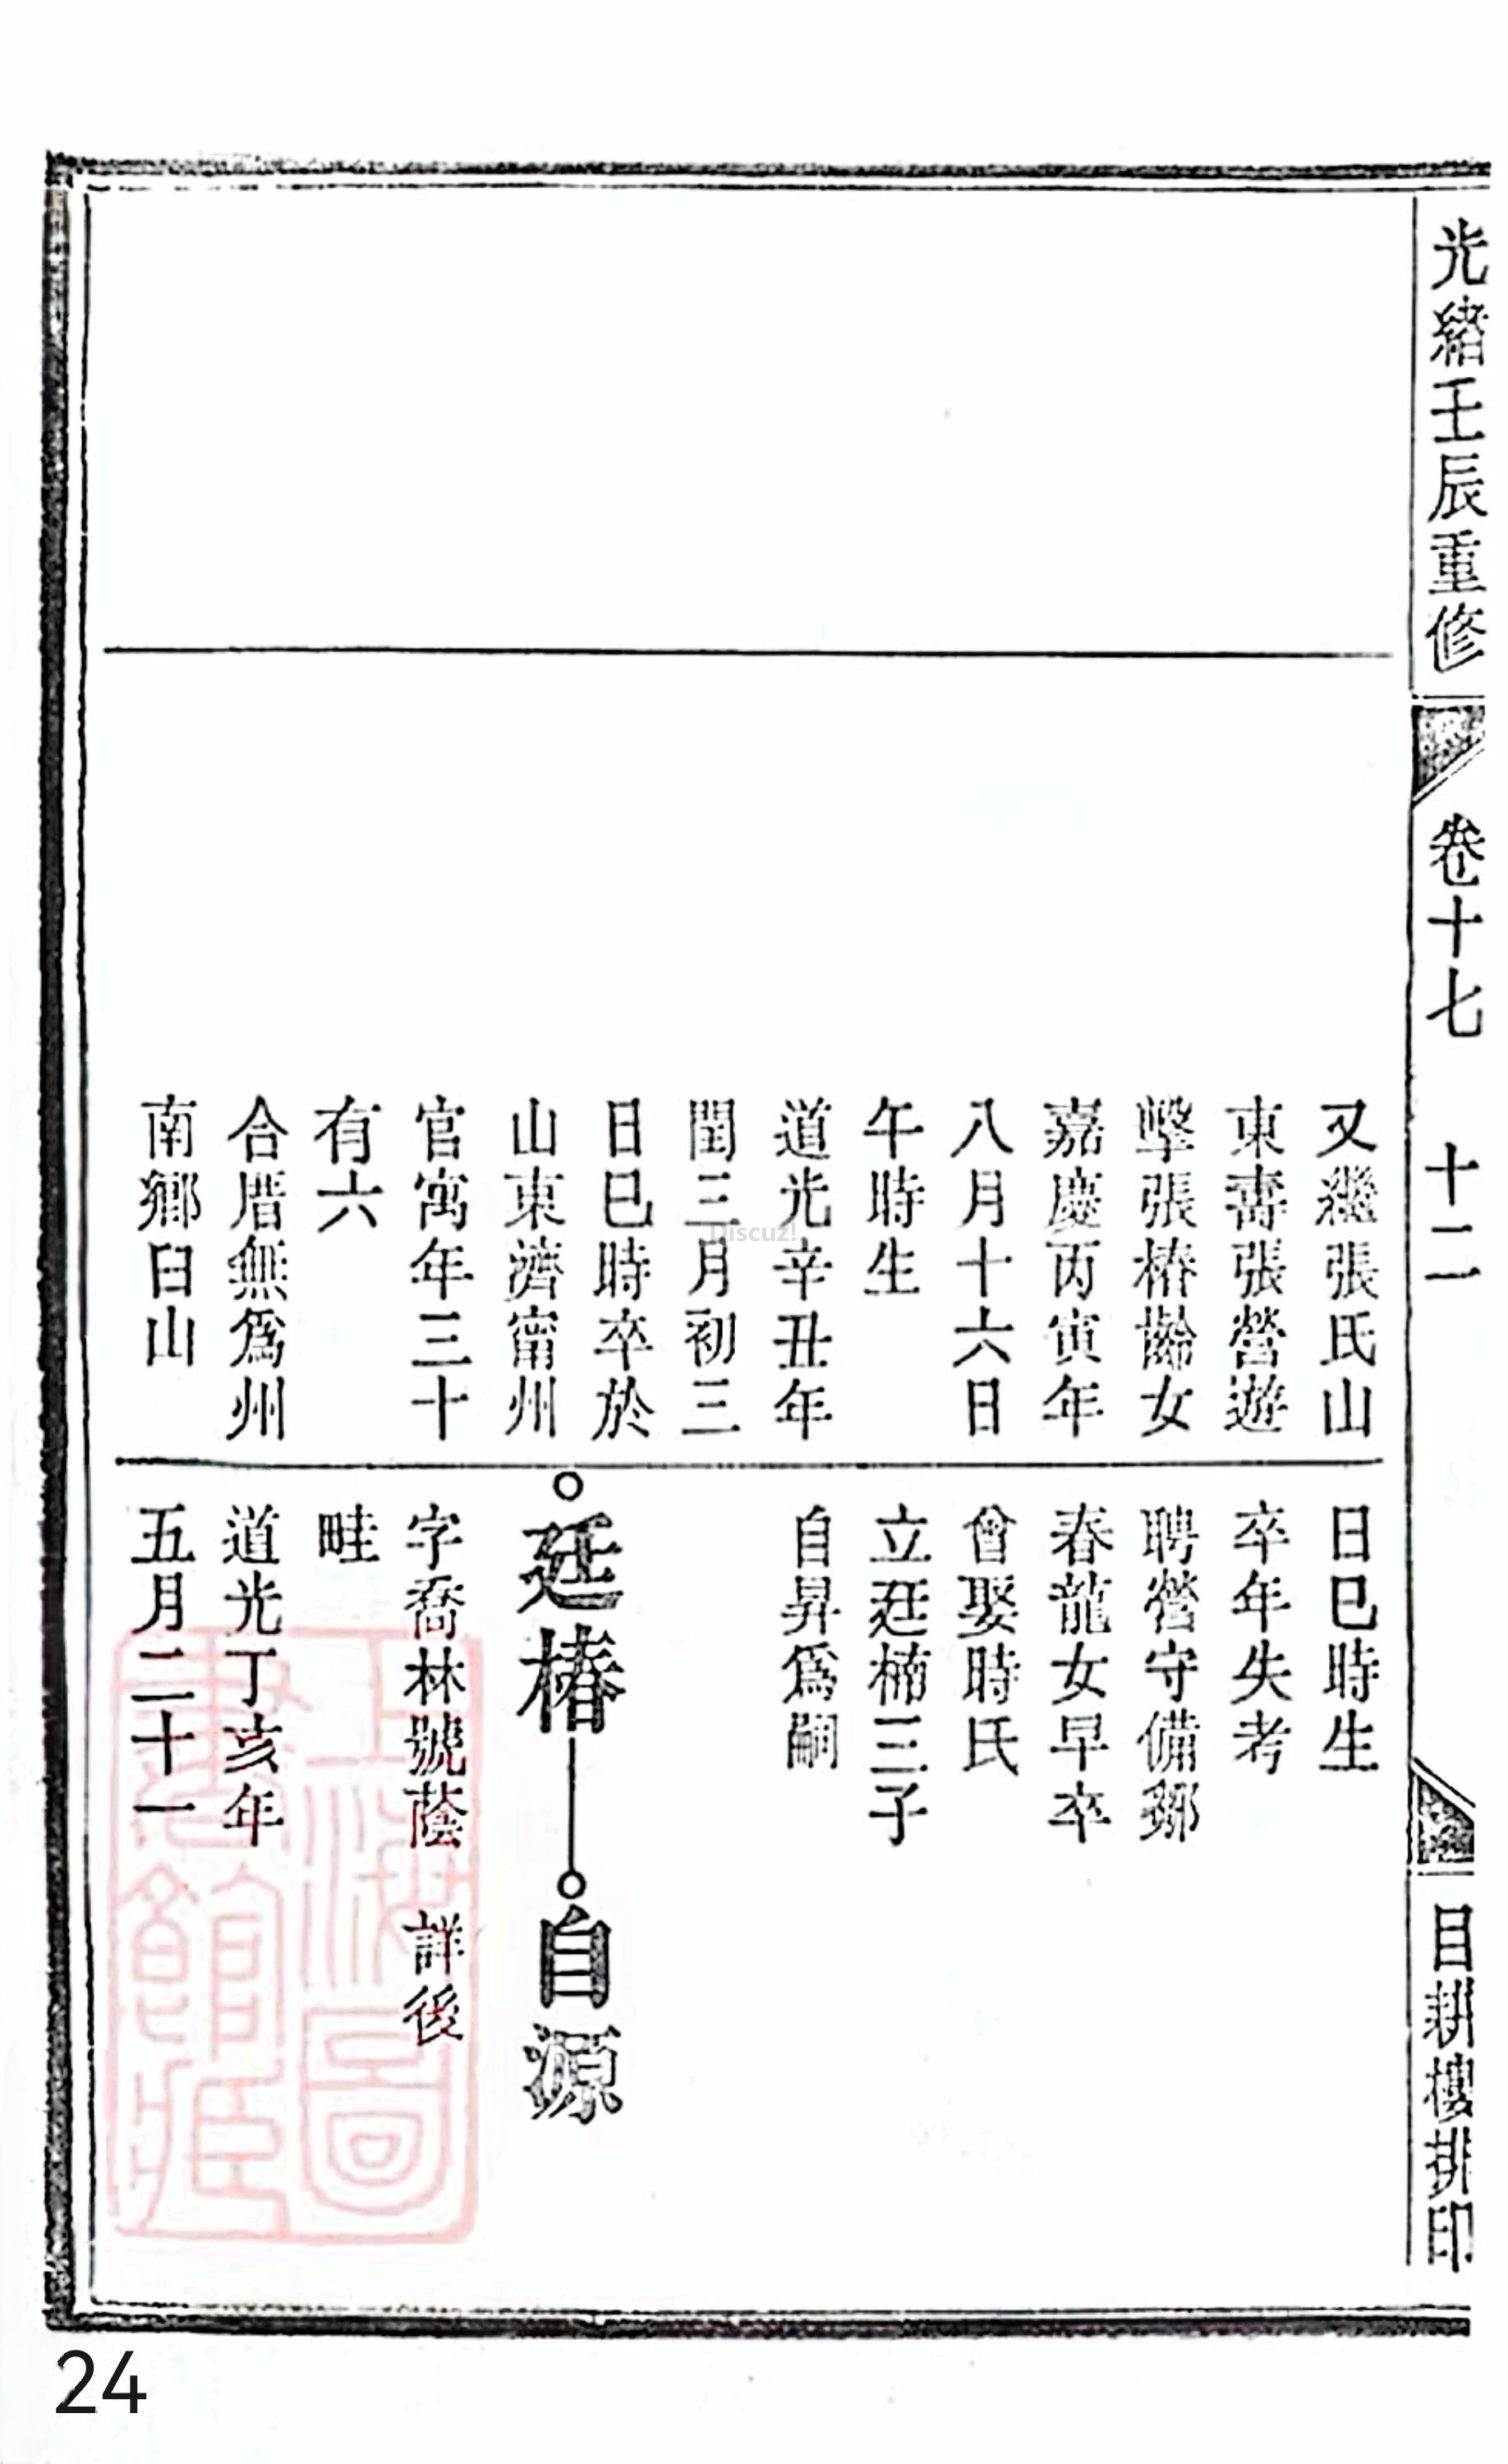 光緒壬辰重修
卷十七
十二
目耕樓排印
又繼張氏山
東壽張營遊
擊張椿齡女
嘉慶丙寅年
八月十六日
午時生
道光辛丑年
閏三月初三
日巳時卒於
山東濟甯州
官寓年三十
有六
合厝無爲州
南鄉臼山
日巳時生
卒年失考
聘營守備鄒
春龍女早卒
曾娶時氏
立廷楠三子
自昇爲嗣
廷椿
自源
字喬林號蔭
詳後
畦
道光丁亥年
五月二十一
上海圖
書館藏
Discuz!
24